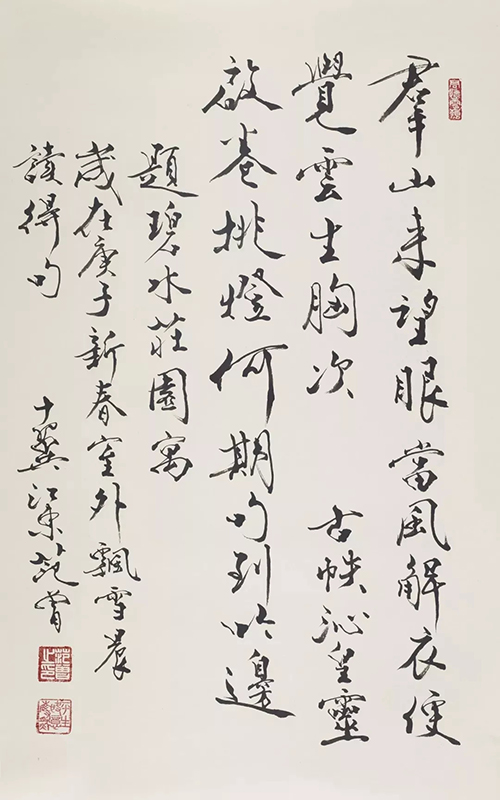 羣山来望眼當風解衣便
覺雲生胸次 古帙沁皇靈
啟卷挑燈何期句到吟邊
題碧水莊園寓
歲在庚子新春室外飄雪晨
讀得句
十翼江東范曾